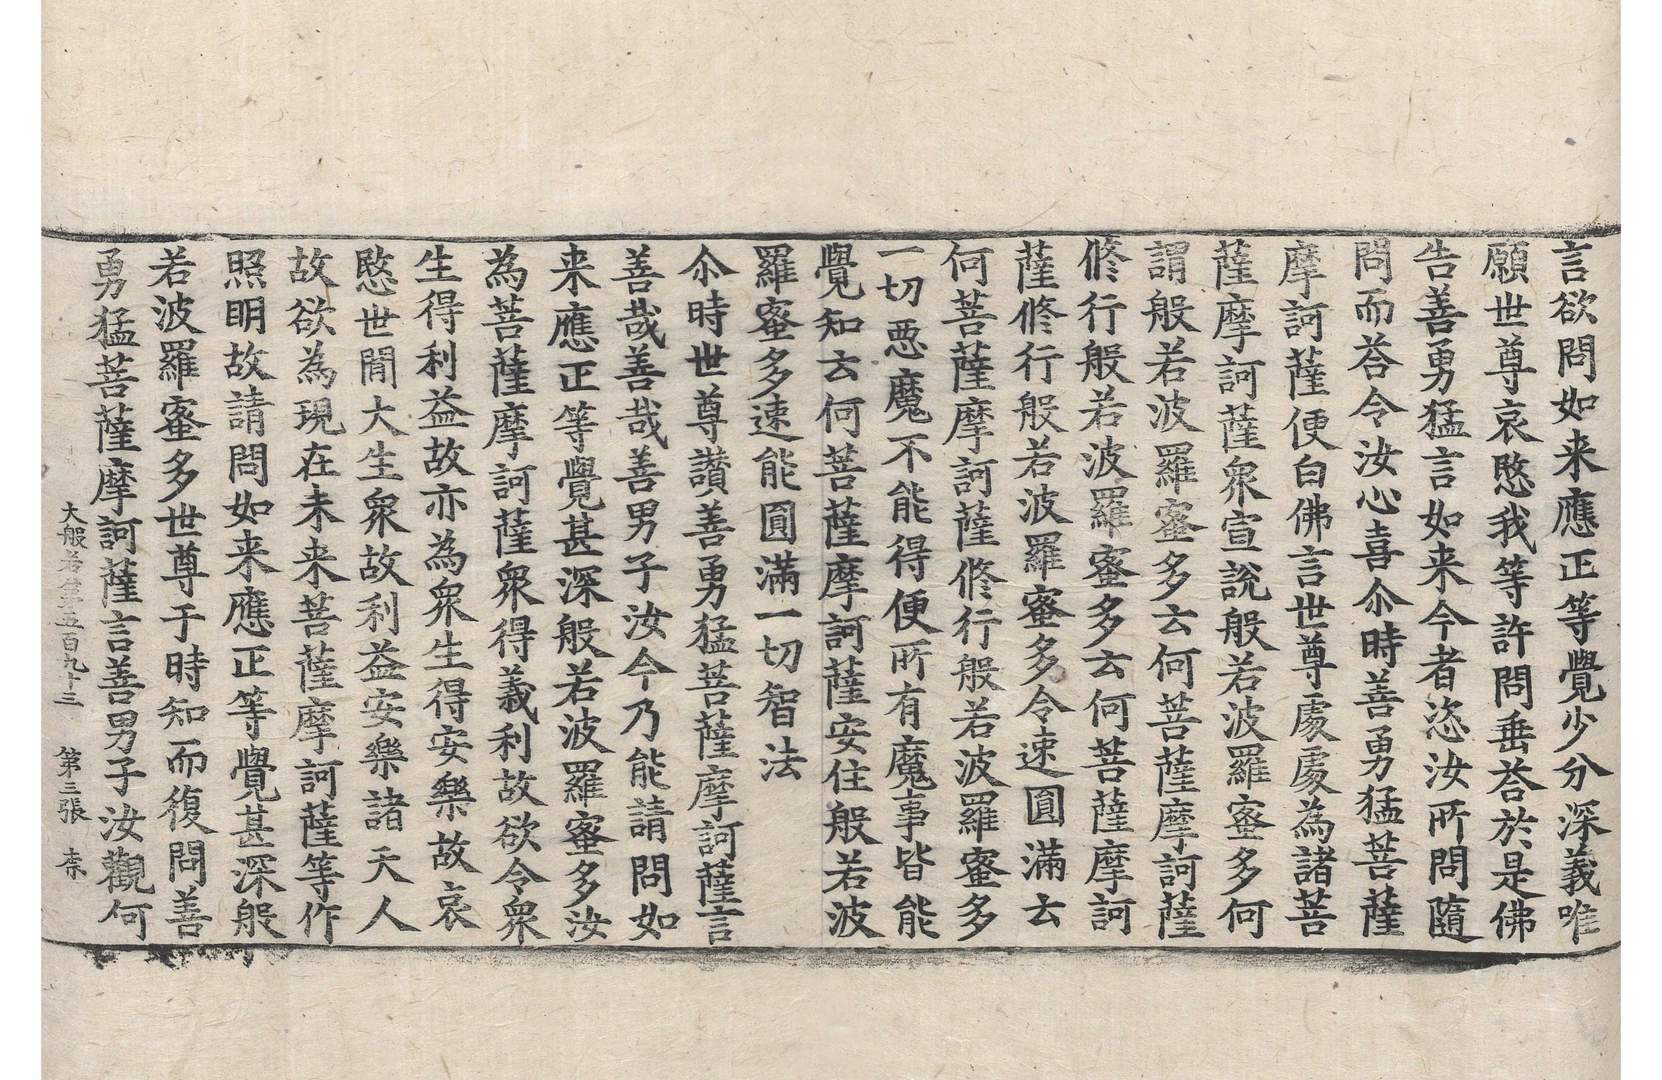 言欲問如来應正等覺少分深義唯
願世尊哀愍我等許問垂荅於是佛
告善勇猛言如来今者恣汝所問隨
問而荅令汝心喜尒時善勇猛菩薩
摩訶薩便白佛言世尊處處為諸菩
薩摩訶薩衆宣說般若波羅蜜多何
謂般若波羅蜜多云何菩薩摩訶薩
修行般若波羅蜜多云何菩薩摩訶
薩修行般若波羅蜜多令速圓滿云
何菩薩摩訶薩修行般若波羅蜜多
一切惡魔不能得便所有魔事皆能
覺知云何菩薩摩訶薩安住般若波
羅蜜多速能圓滿一切智法
尒時世尊讚善勇猛菩薩摩訶薩言
善哉善哉善男子汝今乃能請問如
来應正等覺甚深般若波羅蜜多汝
為菩薩摩訶薩衆得義利故欲令衆
生得利益故亦為衆生得安樂故哀
愍世閒大生衆故利益安樂諸天人
故欲為現在未来菩薩摩訶薩等作
照明故請問如来應正等覺甚深般
若波羅蜜多世尊于時知而復問善
勇猛菩薩摩訶薩言善男子汝觀何
大般若第五百九十三 第三張 柰